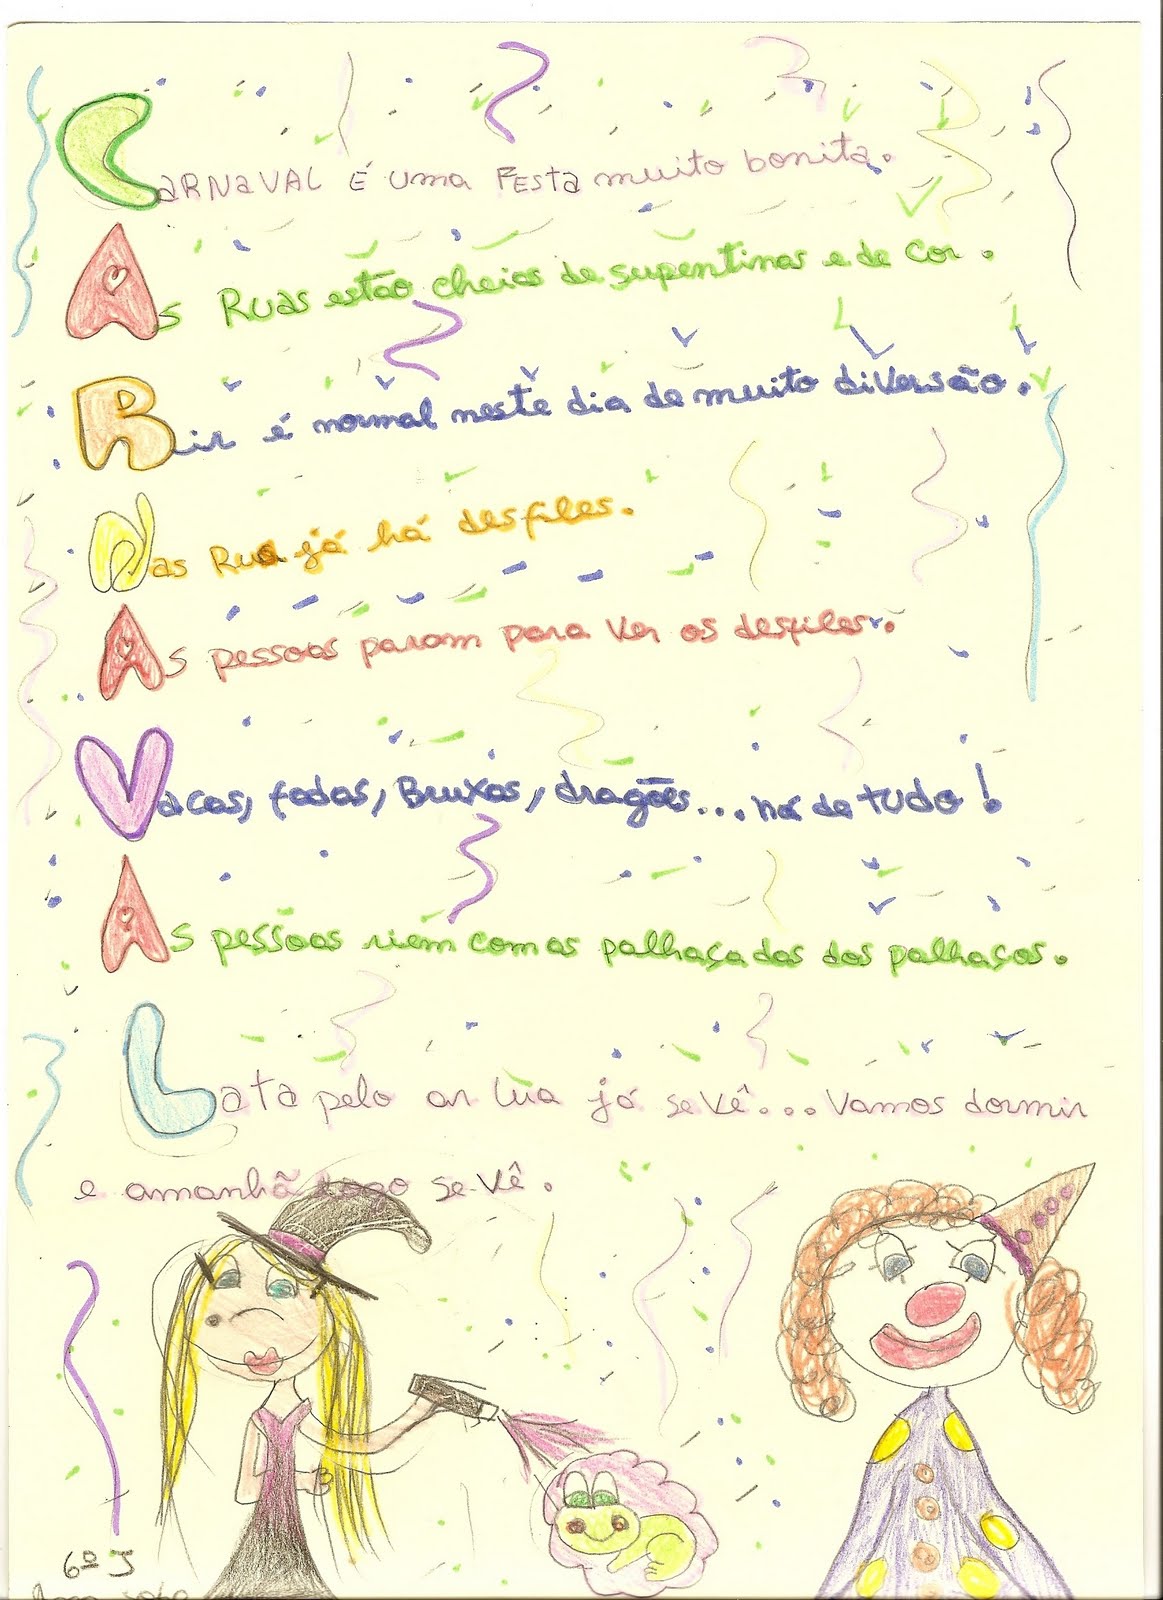 CARNAVAL É uma FESTA muito bonita.
As Ruas estão cheias de supentinas e de cor.
Rir é normal neste dia de muito diversão.
Nas Rua já há desfiles.
As pessoas param para ver os desfiles.
Vacas, fadas, Bruxas, dragões... há de tudo!
As pessoas riem com as palhaçadas dos palhaços.
Lata pelo ar lua já se vê... Vamos dormir
e amanhã logo se vê.
6º J